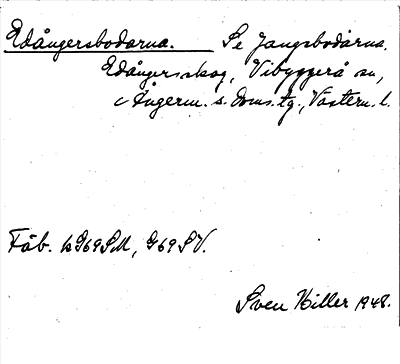 Edångersbodarna. Se Jangsbodarna.
Edångersskog, Vibyggerå sn,
c Ångerm. s. doms. tg., Västern. l.
Fäb. b G69SM, G69SV.
Sven Hiller 1948.